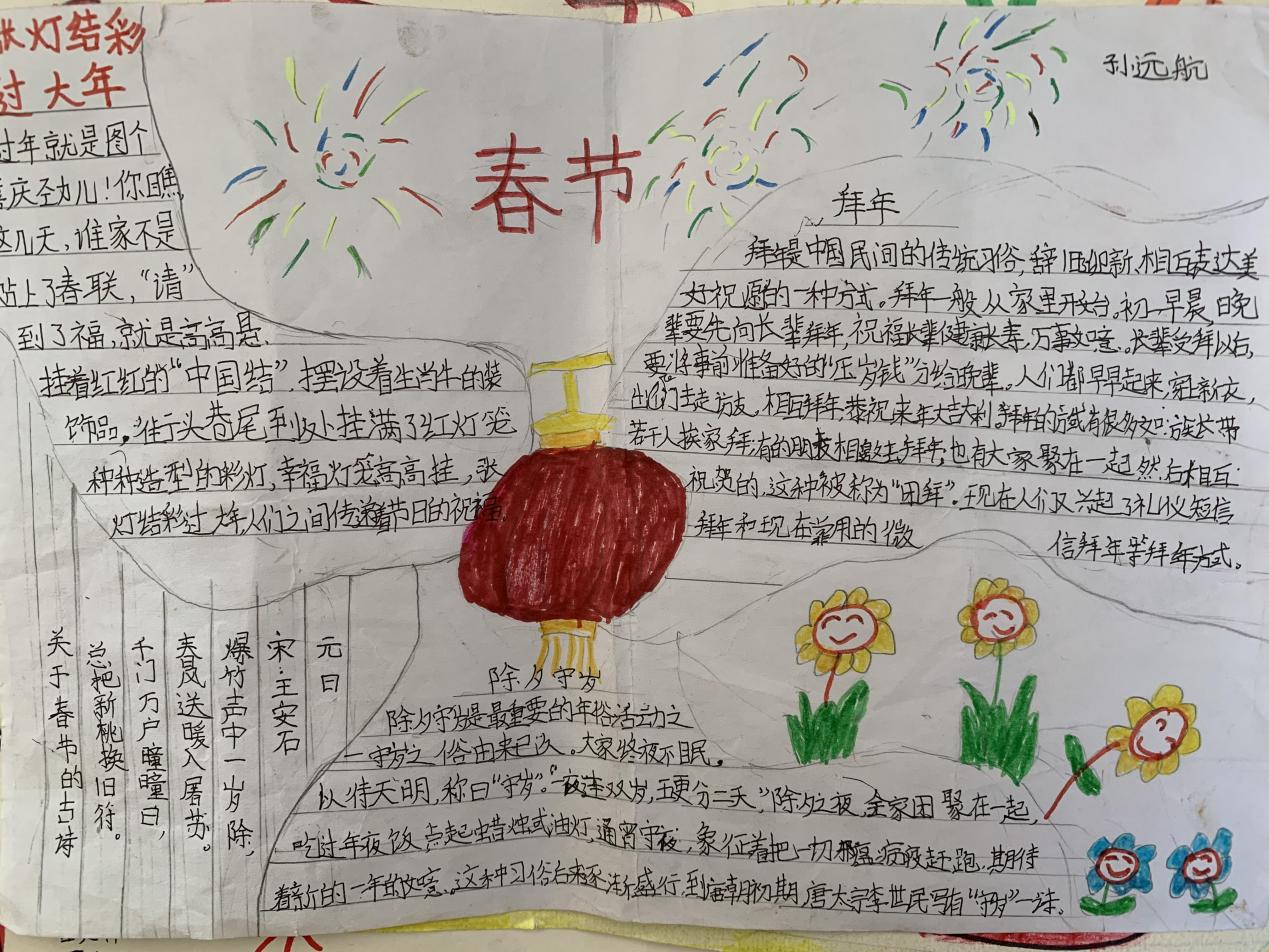 张灯结彩
过大年
过年就是图个
喜庆劲儿！你瞧，
这几天，谁家不是
贴上了春联，“请”
到了福，就是高高悬
挂着红红的“中国结”. 摆设着生肖牛的装
饰品。街头巷尾到处挂满了红灯笼
种种造型的彩灯，幸福灯笼高高挂，张
灯结彩过大年，人们之间传递着节日的祝福。
春节
孙远航
拜年
拜年是中国民间的传统习俗，辞旧迎新、相互表达美
好祝愿的一种方式。拜年一般从家里开始。初一早晨 晚
辈要先向长辈拜年，祝福长辈健康长寿，万事如意。长辈受拜以后，
要将事前准备好的“压岁钱”分给晚辈。人们都早早起来，穿新衣，
出门去走访友，相互拜年恭祝来年大吉大利。拜年的方式有很多如：族长带
若干人挨家拜；有的朋友相邀去拜年；也有大家聚在一起然后相互
祝贺的，这种被称为“团拜”。现在人们又兴起了礼仪短信
拜年和现在常用的微
信拜年等拜年方式。
元日
宋·王安石
爆竹声中一岁除，
春风送暖入屠苏。
千门万户曈曈日，
总把新桃换旧符。
关于春节的古诗
除夕守岁
除夕守岁是最重要的年俗活动之
一守岁之俗由来已久。大家终夜不眠。
以待天明，称曰“守岁”。“一夜连双岁，五更分二天，”除夕之夜，全家团聚在一起，
吃过年夜饭，点起蜡烛或油灯，通宵守夜，象征着把一切邪瘟病疫赶跑，期待
着新的一年的如意。这种习俗后来逐渐盛行，到唐朝初期，唐太宗李世民写有“守岁”一诗。